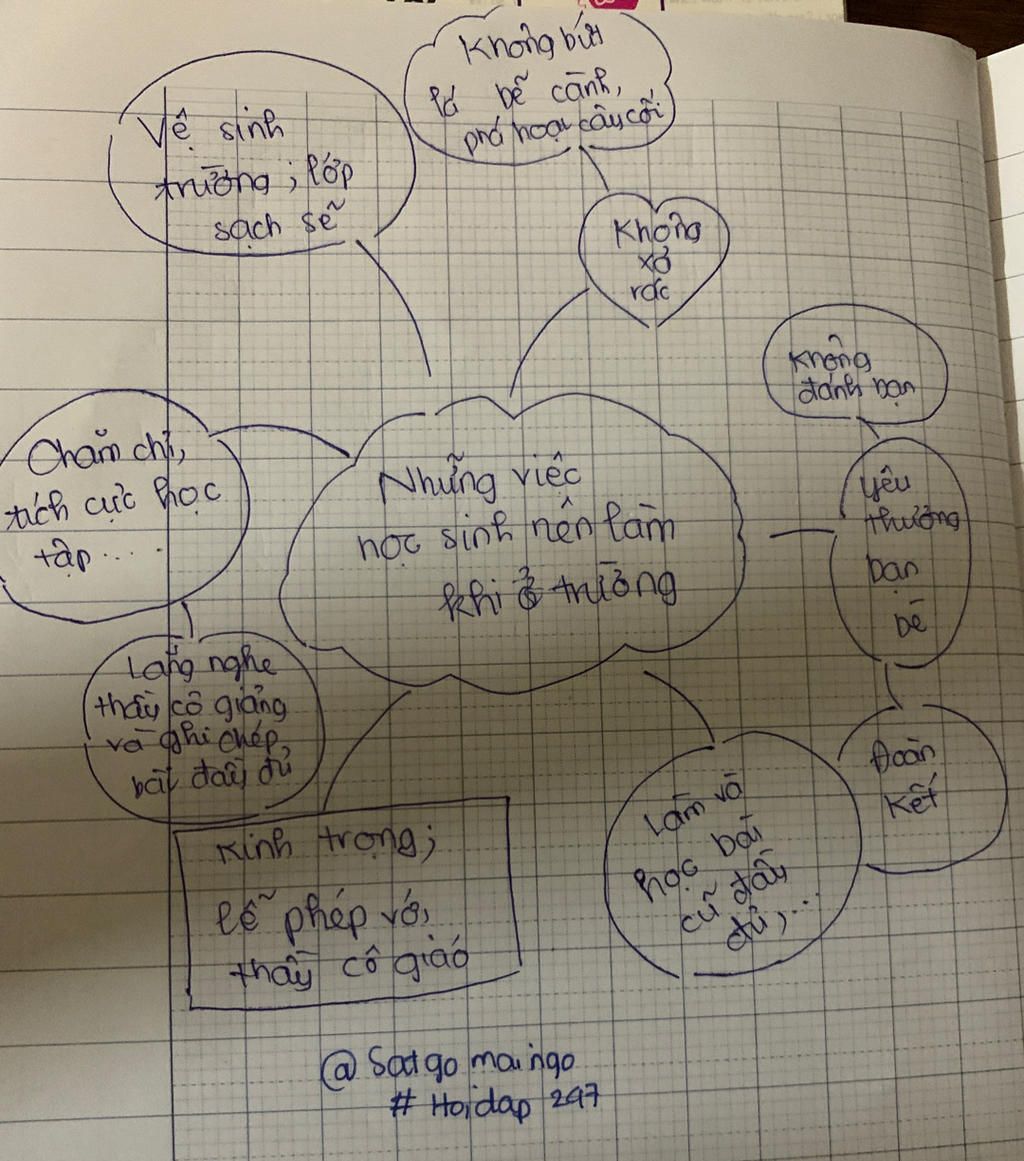 Không bứt
lá bẽ cành,
phá hoại cây cối
Vệ sinh
trường; lớp
sạch sẽ
Không
xả
rác
Không
đánh bạn
Chăm chỉ,
tích cực học
tập.....
Những việc
học sinh nên làm
khi ở trường
yêu
thương
bạn
bè
Lắng nghe
thầy cô giảng
và ghi chép,
bài đầy đủ
Đoàn
kết
Làm và
học bài
cũ đầy
đủ,...
Kính trọng;
lễ phép với
thầy cô giáo
@ Satgo maingo
# Hoidap 247